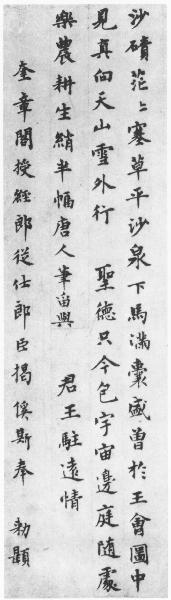 沙磧茫〻塞草平沙泉下馬滿囊盛曽於王會圖中
見真向天山雪外行 聖德只今包宇宙邊庭隨處
樂農耕生綃半幅唐人筆留與 君王駐遠情
奎章閣授經郎從仕郎臣揭傒斯奉 勑題